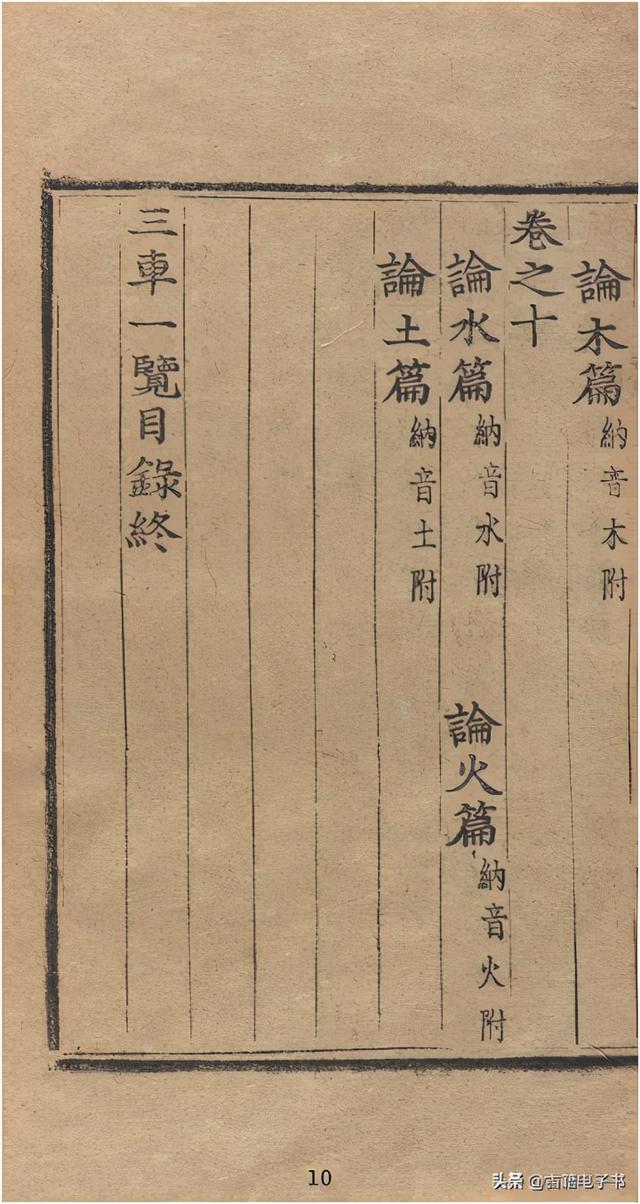 論木篇 納音木附
卷之十
論水篇 納音水附 論火篇 納音火附
論土篇 納音土附
三車一覽目錄終
10
头条 @古籍电子书